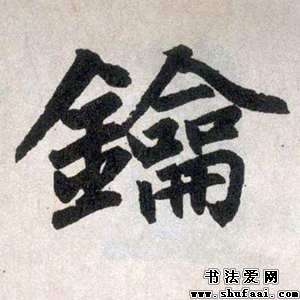 鑰
书法爱网
www.shufaai.com